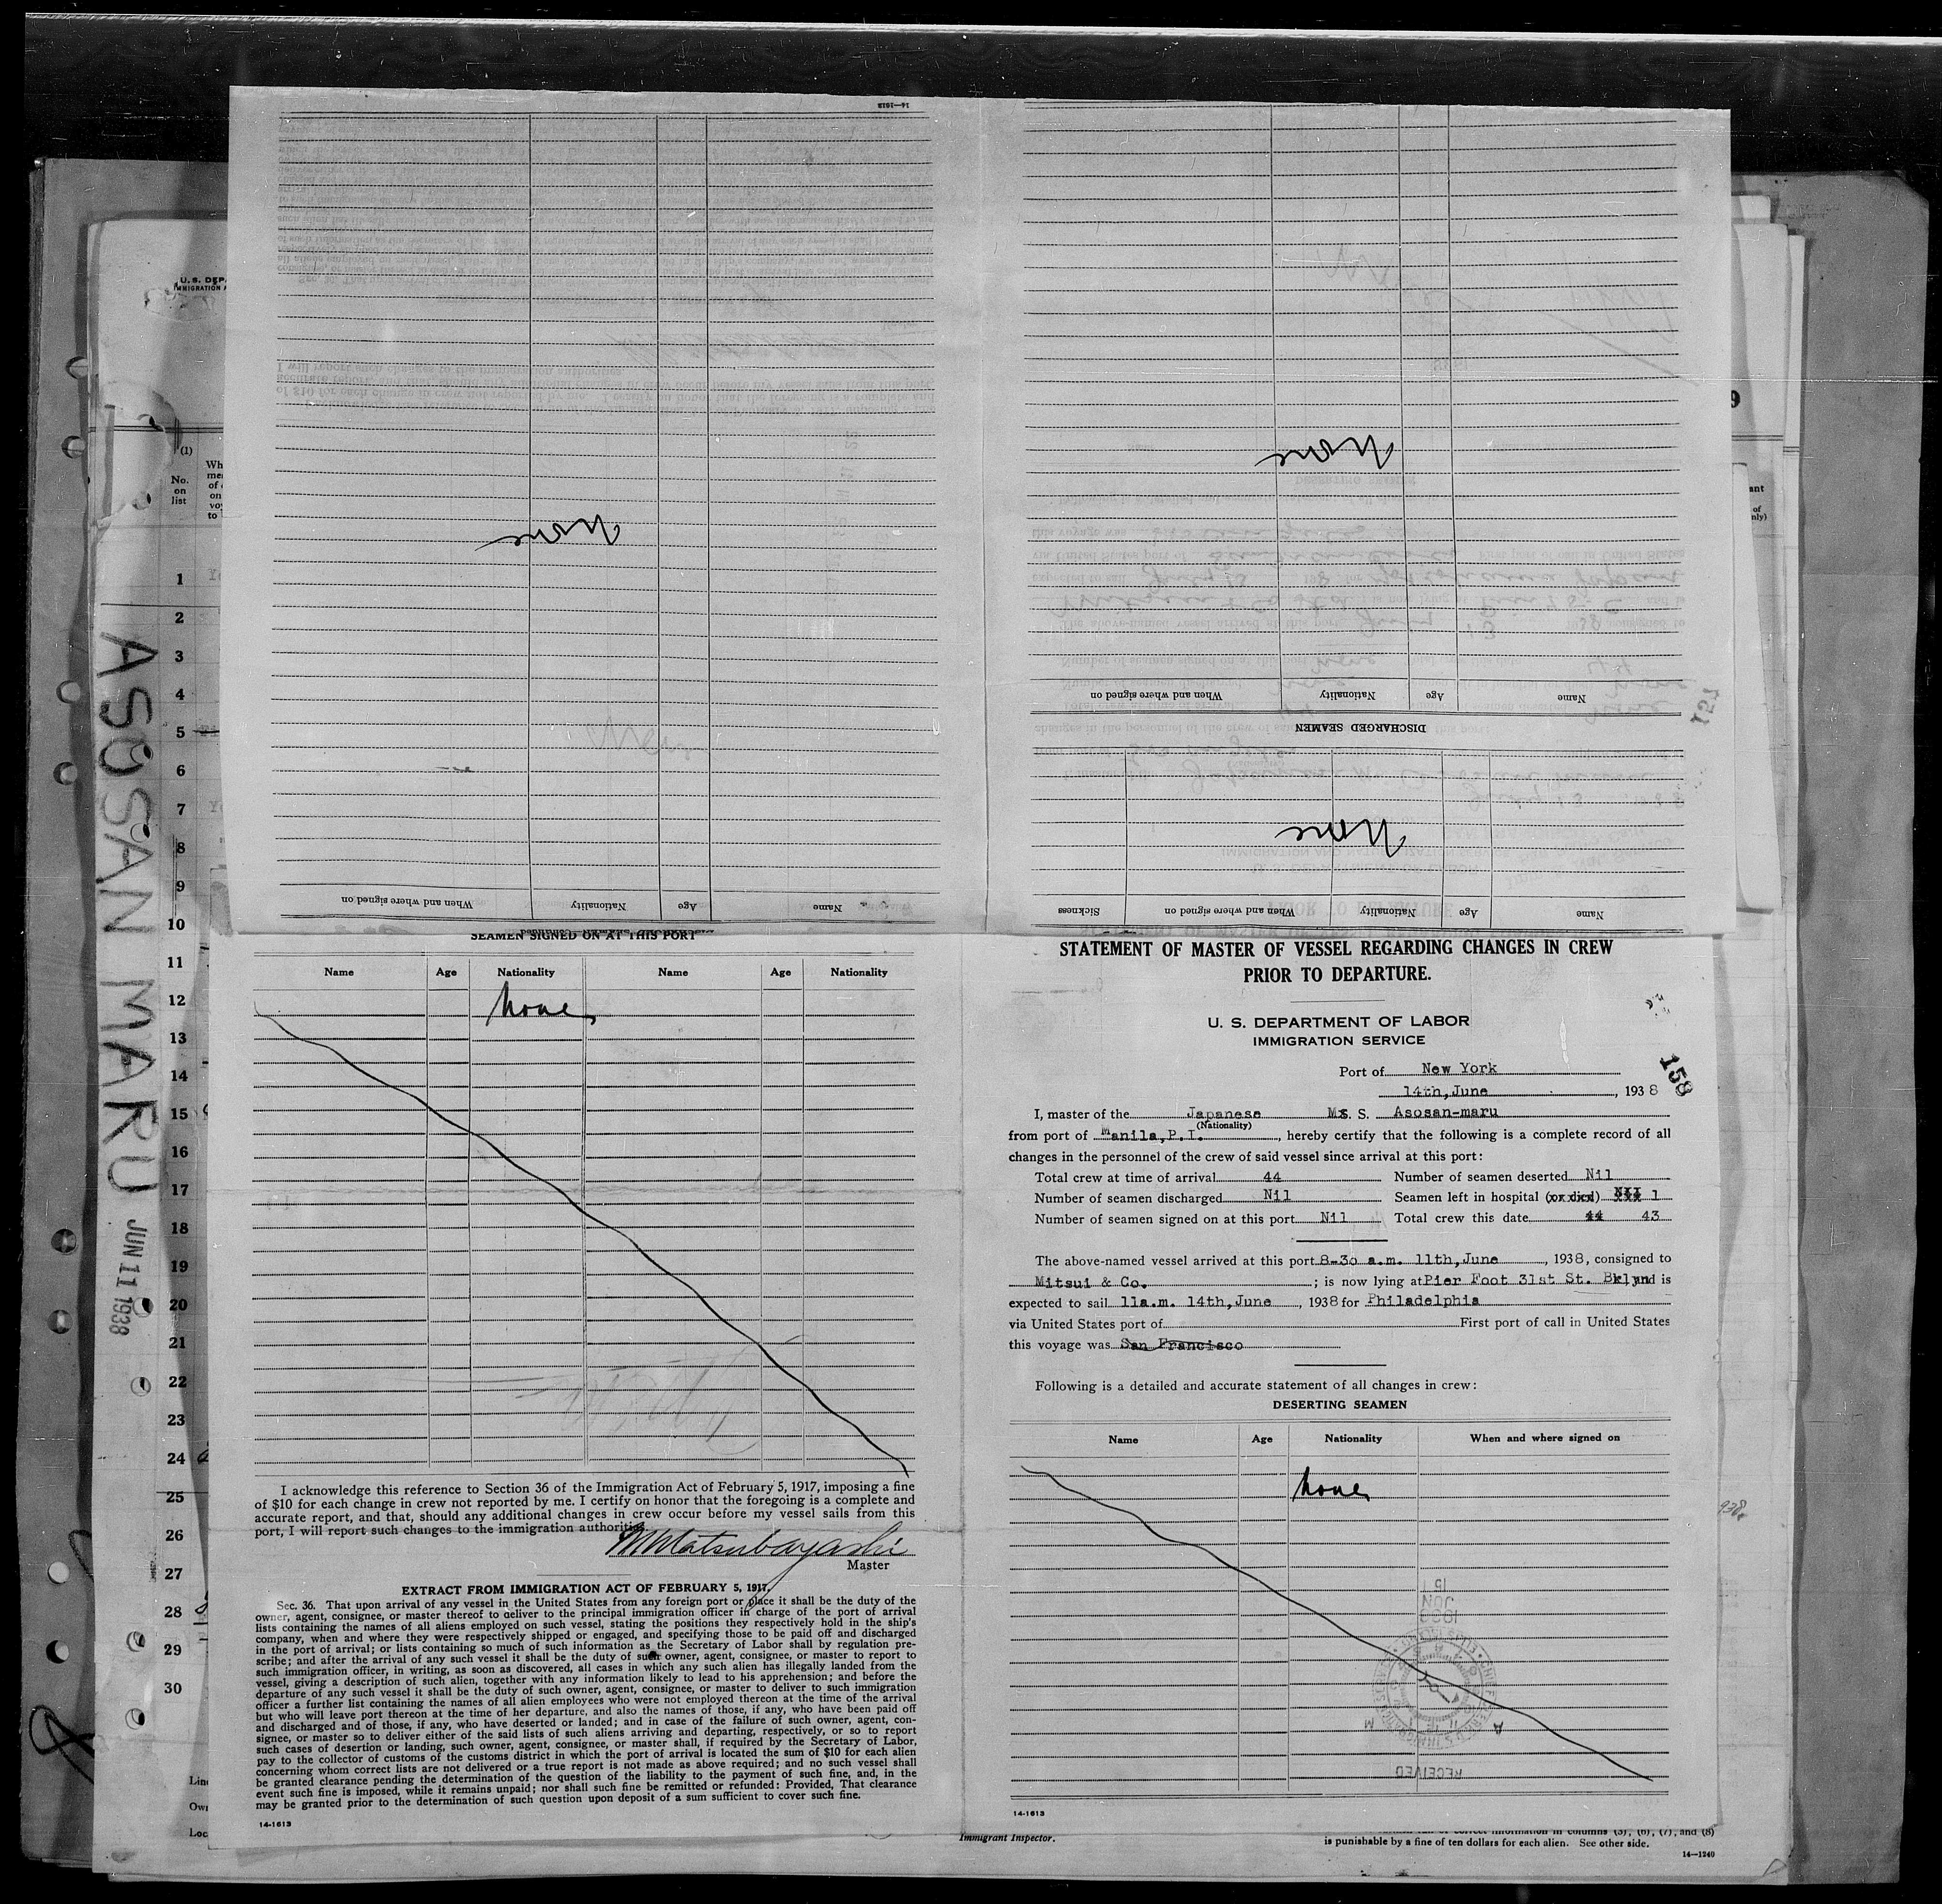 14-1613
None
None
Name Age Nationality When and where signed on
DISCHARGED SEAMEN
None
Name Age Nationality When and where signed on Sickness
Name Age Nationality When and where signed on
157
U. S. DEP
IMMIGRATION A
(1)
No.
on
list
1
2
3
4
5
6
7
8
9
10
11
12
13
14
15
16
17
18
19
20
21
22
23
24
25
26
27
28
29
30
ASOSAN MARU
JUN 11 1938
SEAMEN SIGNED ON AT THIS PORT
Name Age Nationality Name Age Nationality
None
I acknowledge this reference to Section 36 of the Immigration Act of February 5, 1917, imposing a fine
of $10 for each change in crew not reported by me. I certify on honor that the foregoing is a complete and
accurate report, and that, should any additional changes in crew occur before my vessel sails from this
port, I will report such changes to the immigration authorities.
M Matsubayashi
Master
EXTRACT FROM IMMIGRATION ACT OF FEBRUARY 5, 1917.
Sec. 36. That upon arrival of any vessel in the United States from any foreign port or place it shall be the duty of the
owner, agent, consignee, or master thereof to deliver to the principal immigration officer in charge of the port of arrival
lists containing the names of all aliens employed on such vessel, stating the positions they respectively hold in the ship's
company, when and where they were respectively shipped or engaged, and specifying those to be paid off and discharged
in the port of arrival; or lists containing so much of such information as the Secretary of Labor shall by regulation pre-
scribe; and after the arrival of any such vessel it shall be the duty of such owner, agent, consignee, or master to report to
such immigration officer, in writing, as soon as discovered, all cases in which any such alien has illegally landed from the
vessel, giving a description of such alien, together with any information likely to lead to his apprehension; and before the
departure of any such vessel it shall be the duty of such owner, agent, consignee, or master to deliver to such immigration
officer a further list containing the names of all alien employees who were not employed thereon at the time of the arrival
but who will leave port thereon at the time of her departure, and also the names of those, if any, who have been paid off
and discharged and of those, if any, who have deserted or landed; and in case of the failure of such owner, agent, con-
signee, or master so to deliver either of the said lists of such aliens arriving and departing, respectively, or so to report
such cases of desertion or landing, such owner, agent, consignee, or master shall, if required by the Secretary of Labor,
pay to the collector of customs of the customs district in which the port of arrival is located the sum of $10 for each alien
concerning whom correct lists are not delivered or a true report is not made as above required; and no such vessel shall
be granted clearance pending the determination of the question of the liability to the payment of such fine, and, in the
event such fine is imposed, while it remains unpaid; nor shall such fine be remitted or refunded: Provided, That clearance
may be granted prior to the determination of such question upon deposit of a sum sufficient to cover such fine.
14-1613
STATEMENT OF MASTER OF VESSEL REGARDING CHANGES IN CREW
PRIOR TO DEPARTURE.
U. S. DEPARTMENT OF LABOR
IMMIGRATION SERVICE
158
Port of New York
14th, June, 1938
I, master of the Japanese M.S. S. Asosan-maru
(Nationality)
from port of Manila, P.I., hereby certify that the following is a complete record of all
changes in the personnel of the crew of said vessel since arrival at this port:
Total crew at time of arrival 44 Number of seamen deserted Nil
Number of seamen discharged Nil Seamen left in hospital (or died) Nil 1
Number of seamen signed on at this port Nil Total crew this date 44 43
The above-named vessel arrived at this port 8-30 a.m. 11th, June, 1938, consigned to
Mitsui & Co.; is now lying at Pier Foot 31st St. Bklyn and is
expected to sail 11a.m. 14th, June, 1938 for Philadelphia
via United States port of First port of call in United States
this voyage was San Francisco
Following is a detailed and accurate statement of all changes in crew:
DESERTING SEAMEN
Name Age Nationality When and where signed on
None
1938
JUN
15
RECEIVED
14-1613
Immigrant Inspector.
is punishable by a fine of ten dollars for each alien. See other side.
14-1240